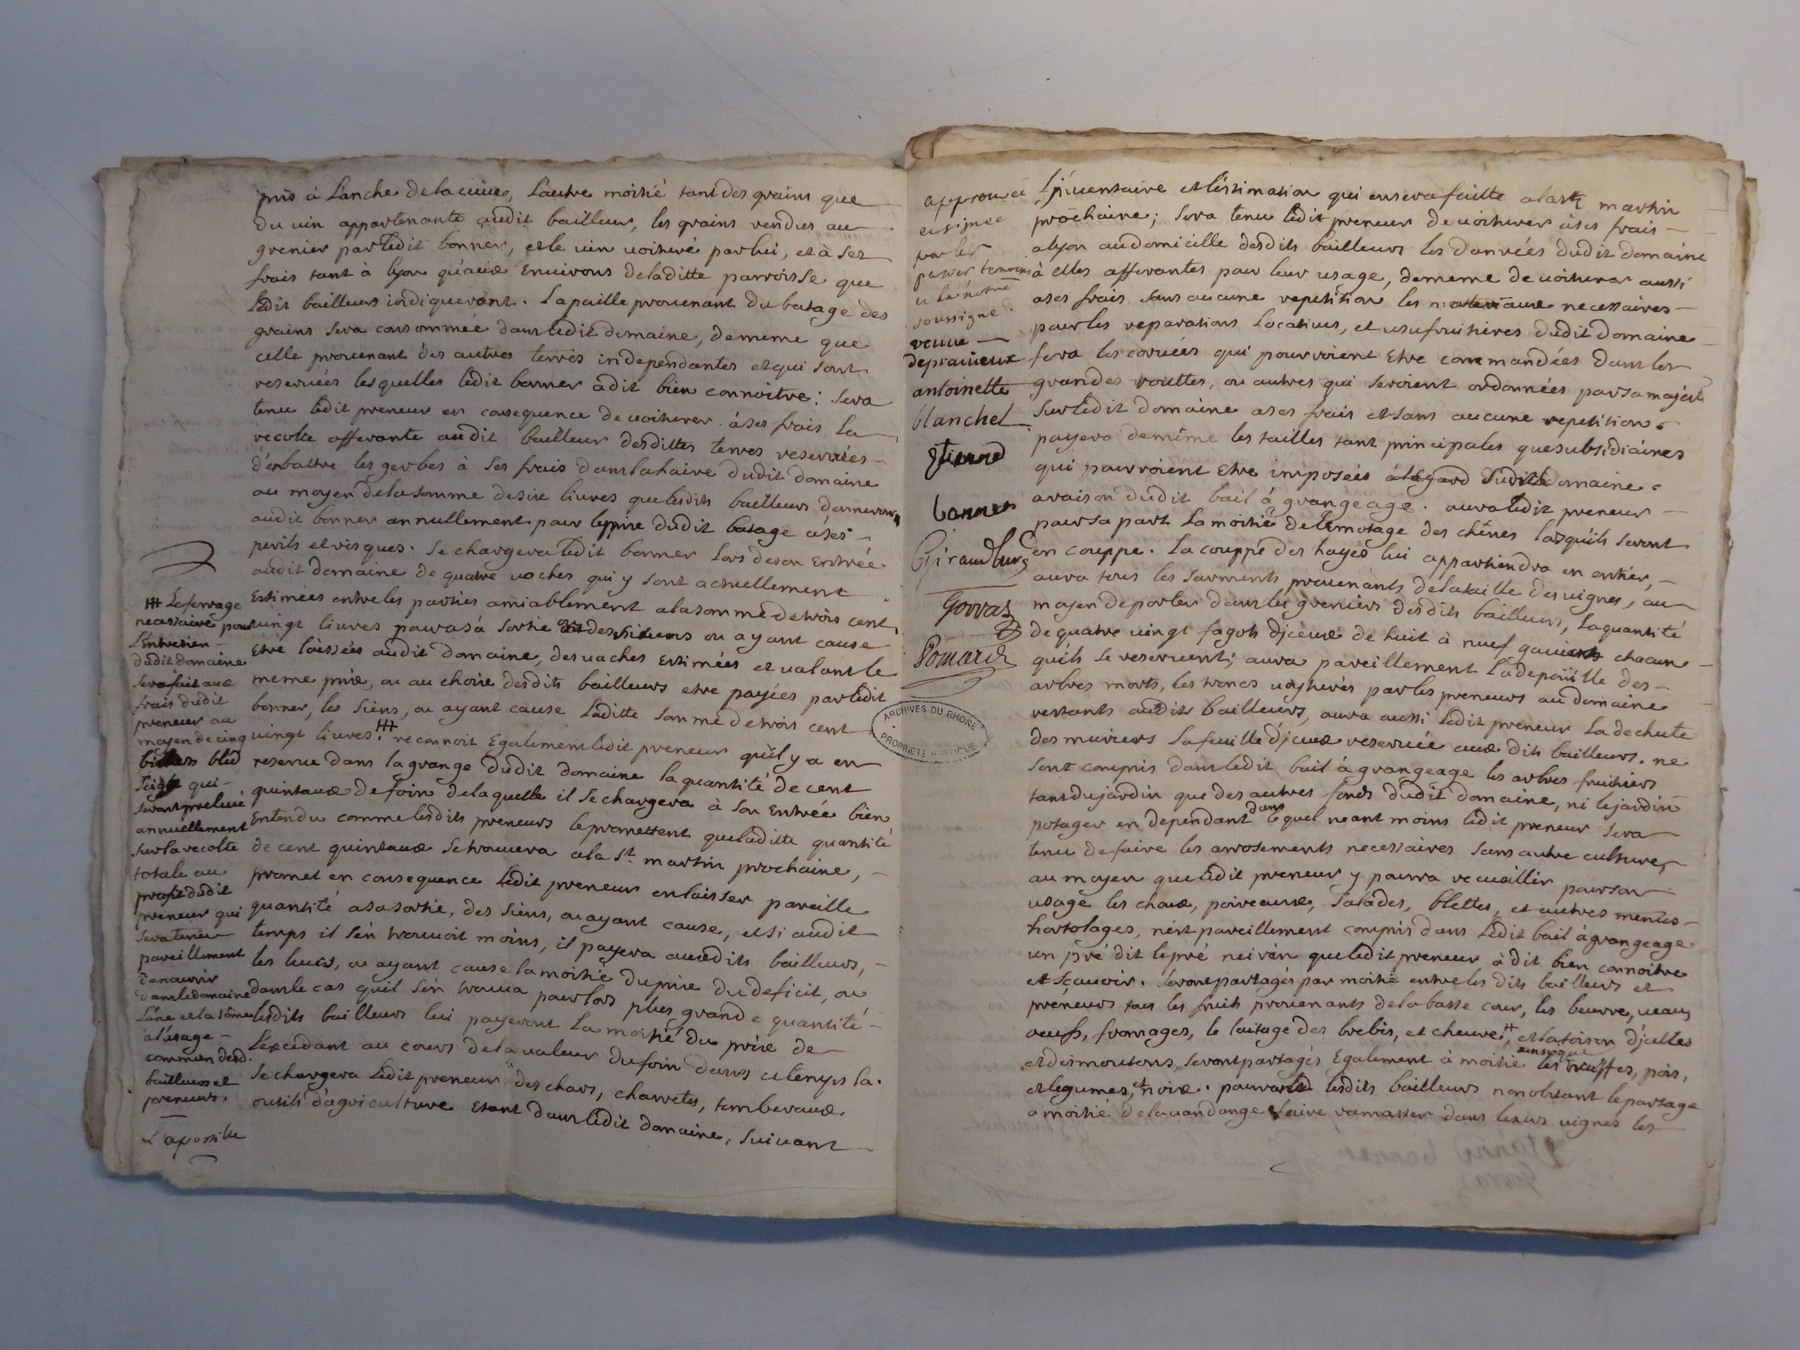 pris à l'anche de la cuve, l'autre moitié tant des grains que
du vin appartenante audit bailleur, les grains rendus au
grenier par ledit bonner, et le vin voituré par lui, et à ses
frais tant à lyon qu'aux Environs de laditte parroisse que
ledit bailleurs indiqueront. La paille provenant du batage des
grains sera consommée dans ledit domaine, de meme que
celle provenant des autres terres independantes et qui sont
reservées lesquelles ledit bonner a dit bien connoitre : sera
tenu ledit preneur en consequence de voiturer à ses frais la
recolte afferante audit bailleur desdittes terres reservées
d'en battre les gerbes à ses frais dans la haire dudit domaine
au moyen de la somme de six livres que lesdits bailleurs donneront
audit bonner annullement pour le prix dudit batage à ses
perils et risques. Se chargera ledit bonner lors de son Entrée
audit domaine de quatre vaches qui y sont actuellement
Estimées entre les parties amiablement a la somme de trois cent
vingt livres pour à sa sortie des siens ou ayant cause
Etre laissées audit domaine, des vaches Estimées et valant le
meme prix, ou au choix desdits bailleurs etre payées par ledit
bonner, les siens, ou ayant cause laditte somme de trois cent
vingt livres. reconnoit Egalement ledit preneur qu'il y a en
reserve dans la grange dudit domaine la quantité de cent
quintaux de foin de laquelle il se chargera à son Entrée bien
Entendu comme lesdits preneurs le promettent que laditte quantité
de cent quintaux se trouvera a la St martin prochaine,
promet en consequence ledit preneur en laisser pareille
quantité a sa sortie, des siens, ou ayant cause, et si audit
temps il s'en trouvoit moins, il payera auxdits bailleurs,
les leurs, ou ayant cause la moitié du prix du deficit, ou
dans le cas qu'il s'en trouva pour lors plus grande quantité
lesdits bailleurs lui payeront la moitié du prix de
l'excedant au cours de la valeur du foin dans ce temps la.
Se chargera ledit preneur des chars, charretes, tombereaux
outils d'agriculture etant dans ledit domaine, suivant
Le ferrage
necessaire pour
L'Entretien
dudit domaine
sera fait aux
frais dudit
preneur au
moyen de cinq
bled
seigle qui
seront prelevé
annuellement
sur la recolte
totale au
profit dudit
preneur qui
sera tenu
pareillement
de nourrir
dans le domaine
l'ane et la
à l'usage
commun desd.
bailleurs et
preneurs.
approuvé
et signée
par les
parties temoins
et le notre
soussigné.
veuve
depraineux
antoinette
blanchet
Etienne
bonner
Giraud
Gorras
Pomard
ARCHIVES DU RHONE
PROPRIETE PUBLIQUE
L'inventaire et l'estimation qui en sera faitte a la St martin
prochaine ; sera tenu ledit preneur de voiturer à ses frais
a lyon au domicille desdits bailleurs les danrées dudit domaine
à elles afferantes pour leur usage, de meme de voiturer aussi
a ses frais sans aucune repetition les materiaux necessaires
pour les reparations Locatives, et usufruitieres dudit domaine
fera les corvées qui pourroient Etre commandées dans les
grandes routtes, ou autres qui seroient ordonnées par sa majesté
sur ledit domaine a ses frais et sans aucune repetition.
payera de même les tailles tant principales que subsidiaires
qui pourroient etre imposées à l'egard dudit domaine
a raison dudit bail à grangeage. aura ledit preneur
pour sa part la moitié de l'emotage des chênes lorsqu'ils seront
en couppe. La couppe des hayes lui appartiendra en entier,
aura tous les sarments provenants de la taille des vignes, au
moyen de porter dans les greniers desdits bailleurs, la quantité
de quatre vingt fagots d'iceux de huit à neuf chacun
qu'ils se reservent ; aura pareillement la depoüille des
arbres morts, les troncs voiturés par les preneurs au domaine
restants auxdits bailleurs, aura aussi ledit preneur la dechute
des muriers la feuille d'iceux reservée aux dits bailleurs. ne
sont compris dans ledit bail à grangeage les arbres fruitiers
tant du jardin que des autres fonds dudit domaine, ni le jardin
potager en dependant dans lequel neant moins ledit preneur sera
tenu de faire les arrosements necessaires sans autre culture,
au moyen que ledit preneur y pourra recueillir pour son
usage les choux, poireaux, salades, blettes, et autres menues
hortolages, n'est pareillement compris dans ledit bail à grangeage
un pré dit le pré que ledit preneur à dit bien connoitre
et sçavoir. seront partagés par moitié entre les dits bailleurs et
preneurs tous les fruits provenants de la basse cour, les beurre, veaux
oeufs, fromages, le laitage des brebis, et chevres, et la toison d'icelles
et des moutons, seront partagés Egalement à moitié les truffes, pois,
ainsi que
et legumes, et noix. pourront lesdits bailleurs nonobstant le partage
a moitié de la vandange faire ramasser dans leurs vignes les
L'apostille